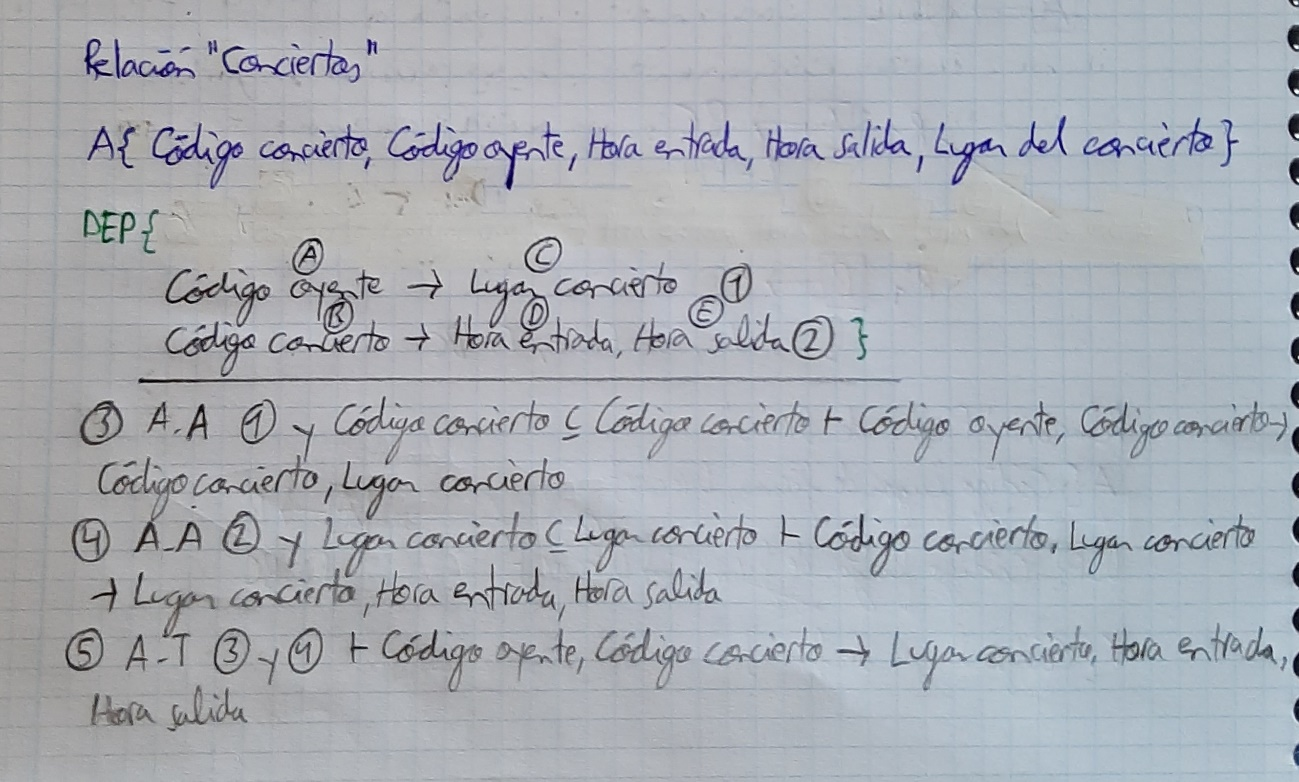 Relación "Conciertos"
A{ Código concierto, Código oyente, Hora entrada, Hora salida, Lugar del concierto}
DEP{
Ⓐ Ⓒ
Código oyente → Lugar concierto ①
Ⓑ Ⓓ Ⓔ
Código concierto → Hora entrada, Hora salida ② }
③ A.A ① y Código concierto ⊆ Código concierto ⊢ Código oyente, Código concierto →
Código concierto, Lugar concierto
④ A-A ② y Lugar concierto ⊆ Lugar concierto ⊢ Código concierto, Lugar concierto
→ Lugar concierto, Hora entrada, Hora salida
⑤ A-T ③ y ④ ⊢ Código oyente, Código concierto → Lugar concierto, Hora entrada,
Hora salida